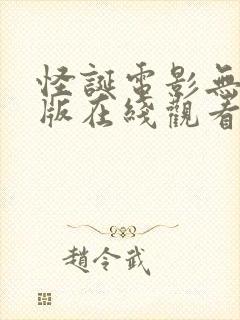 怪誕電影無
版在綫觀看
趙令武